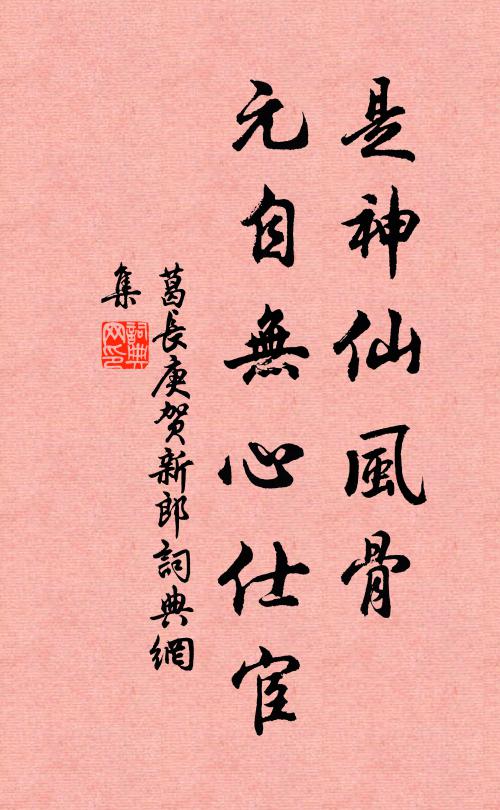 是神仙風骨
元自無心仕宦
葛長庚賀新郎詞典網
集
詞典
网印